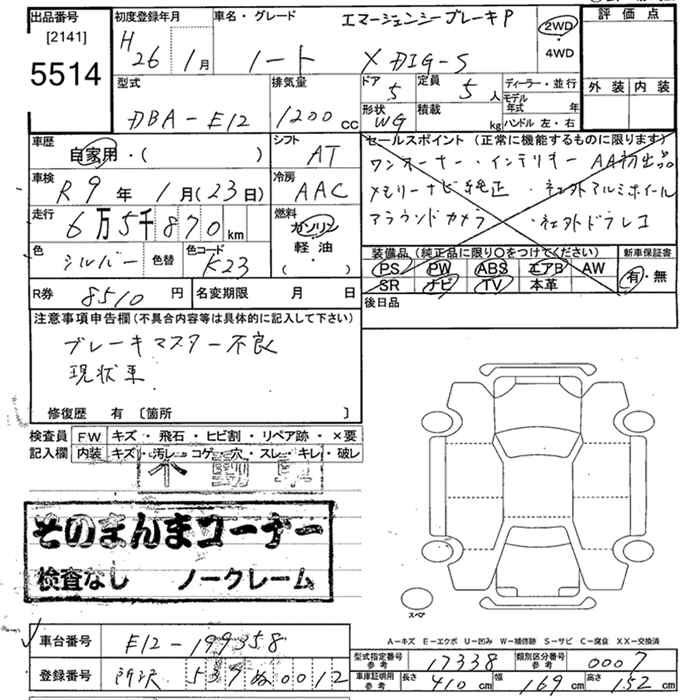 出品番号
[2141]
5514
初度登録年月
H 26 1月
車名・グレード
エマージェンシーブレーキP
ノート X DIG-S
2WD
・
4WD
評価点
外装 内装
型式
DBA-E12
排気量
1200 cc
ドア 5
定員 5人
形状 WG
積載 kg
ディーラー・並行
モデル年式 年
ハンドル 左・右
車歴
自家用・( )
シフト
AT
車検
R 9年 1月(23日)
冷房
AAC
走行
6万5千870km
燃料
ガソリン
軽油
( )
色
シルバー
色替
色コード
K23
R券 8510円
名変期限 月 日
セールスポイント (正常に機能するものに限ります)
ワンオーナー・インテリキー AA初出品
メモリーナビ純正 ・社外アルミホイール
アラウンドカメラ ・社外ドラレコ
装備品 (純正品に限り○をつけてください)
PS PW ABS エアB AW
SR ナビ TV 本革
新車保証書
有・無
後日品
注意事項申告欄 (不具合内容等は具体的に記入して下さい)
ブレーキマスター不良
現状車
修復歴 有 〔箇所 〕
検査員 FW キズ・飛石・ヒビ割・リペア跡・×要
記入欄 内装 キズ・汚レ・コゲ・穴・スレ・キレ・破レ
そのまんまコーナー
検査なし ノークレーム
スペア
A-キズ E-エクボ U-凹み W-補修跡 S-サビ C-腐食 XX-交換済
車台番号 E12-199358
登録番号 所沢 537 ぬ 0012
型式指定番号 参考 17338
類別区分番号 参考 0007
車庫証明用 参考 長さ 410cm 幅 169cm 高さ 152cm